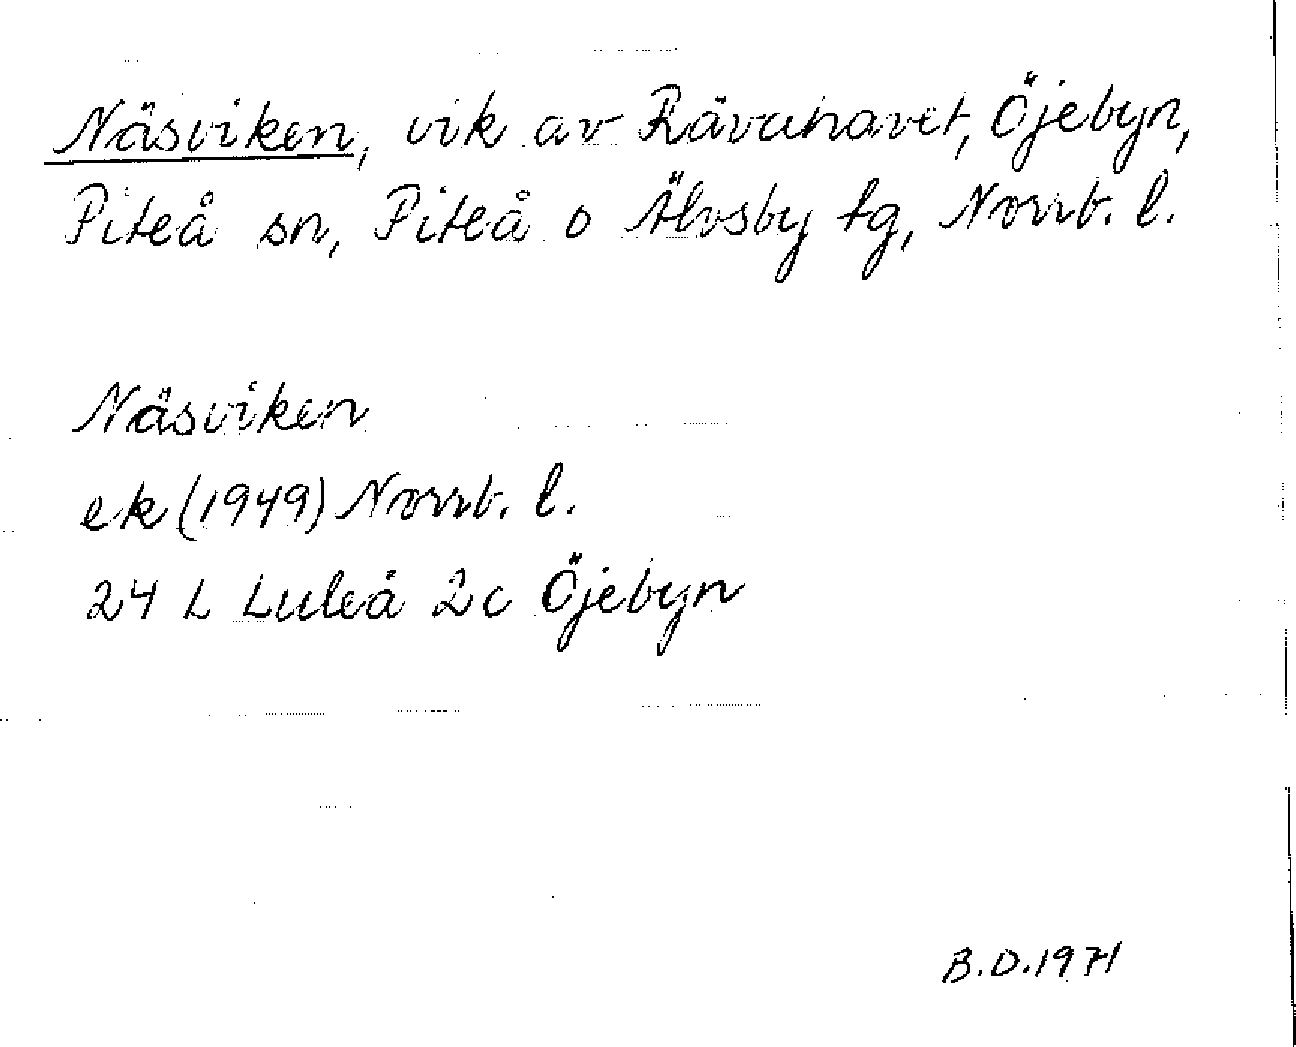 Näsviken, vik av Rävahavet, Öjebyn,
Piteå sn, Piteå o Älvsby tg, Norrb. l.
Näsviken
ek (1949) Norrb. l.
24 L Luleå 2c Öjebyn
B.D.1971